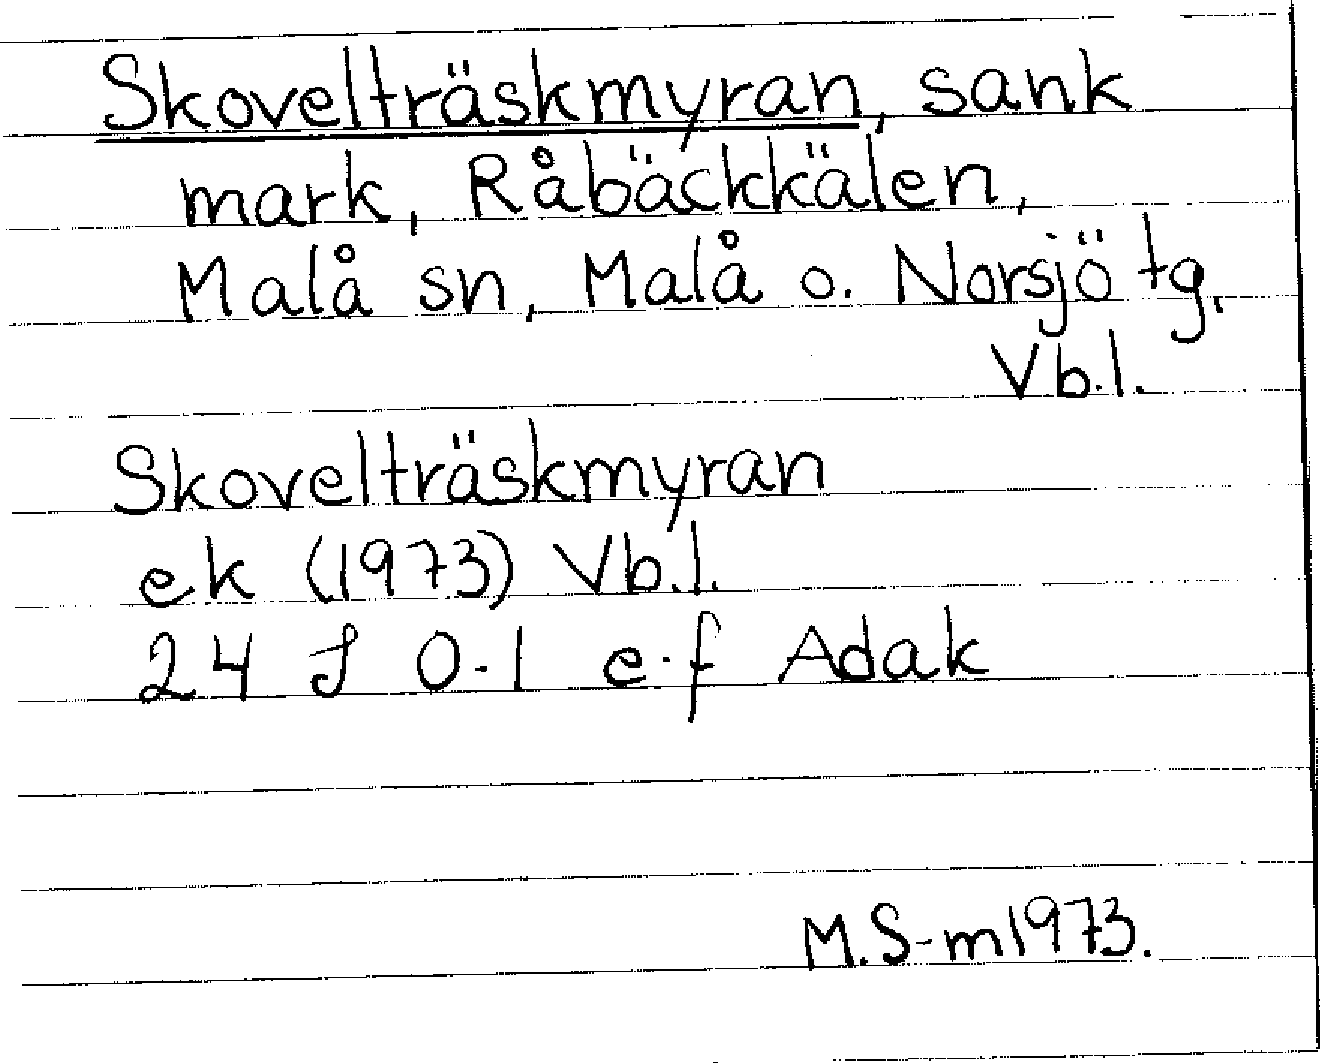 Skovelträskmyran, sank
mark, Råbäckkälen,
Malå sn, Malå o. Norsjö tg,
Vb.l.
Skovelträskmyran
ek (1973) Vb.l.
24 J 0-1 e-f Adak
M.S-m 1973.